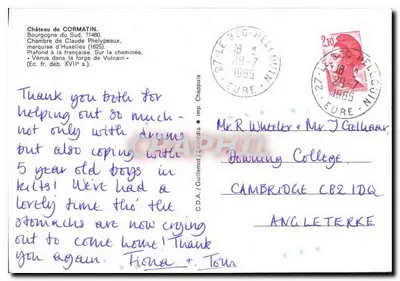 Château de CORMATIN.
Bourgogne du Sud. 71460.
Chambre de Claude Phelypeaux,
marquise d'Huxelles (1625).
Plafond à la française. Sur la cheminée,
« Vénus dans la forge de Vulcain »
(Ec. fr. déb. XVIIe s.)
Thank you both for
helping out so much -
not only with drums
but also coping with
5 year old boys in
kilts! We've had a
lovely time tho' the
stomachs are now crying
out to come home! Thank
you again. Fiona + Tom
C.D.A. / Guillemot / imp. Chappuis
27-LE BEC-HELLOUIN
18 H
29-7
1985
EURE
2,10
27-LE BEC-HELLOUIN
18
29-7
1985
EURE
Mr. R Wheeler + Mr. J
Downing College,
CAMBRIDGE CB2 1DQ
ANGLETERRE